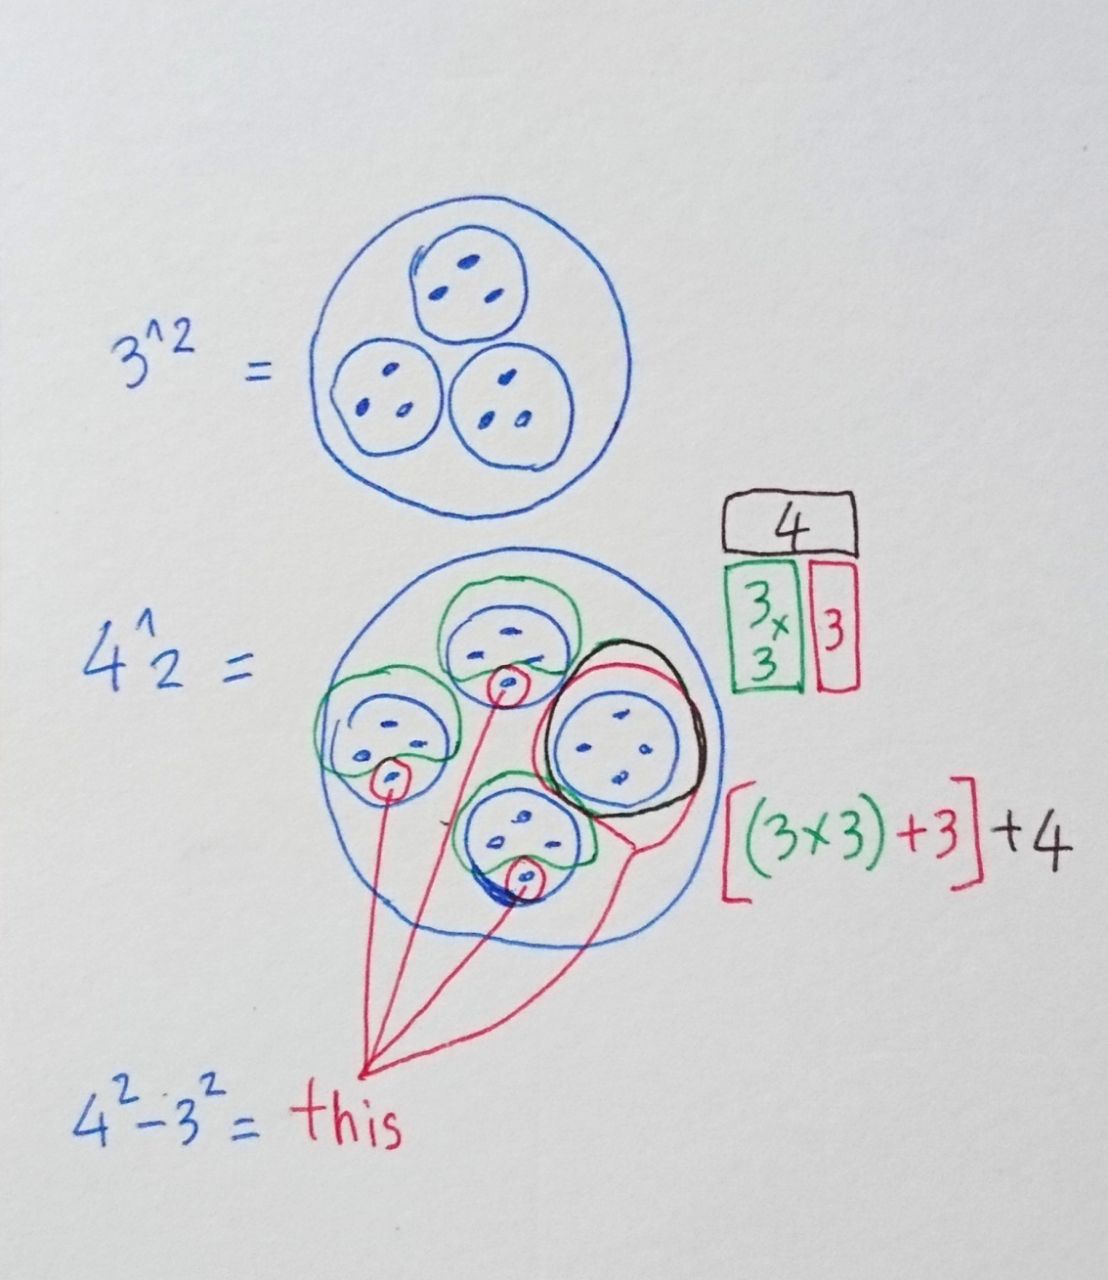 3^2 =
4
3x
3
3
4^2 =
[(3x3)+3]+4
4²-3²= this